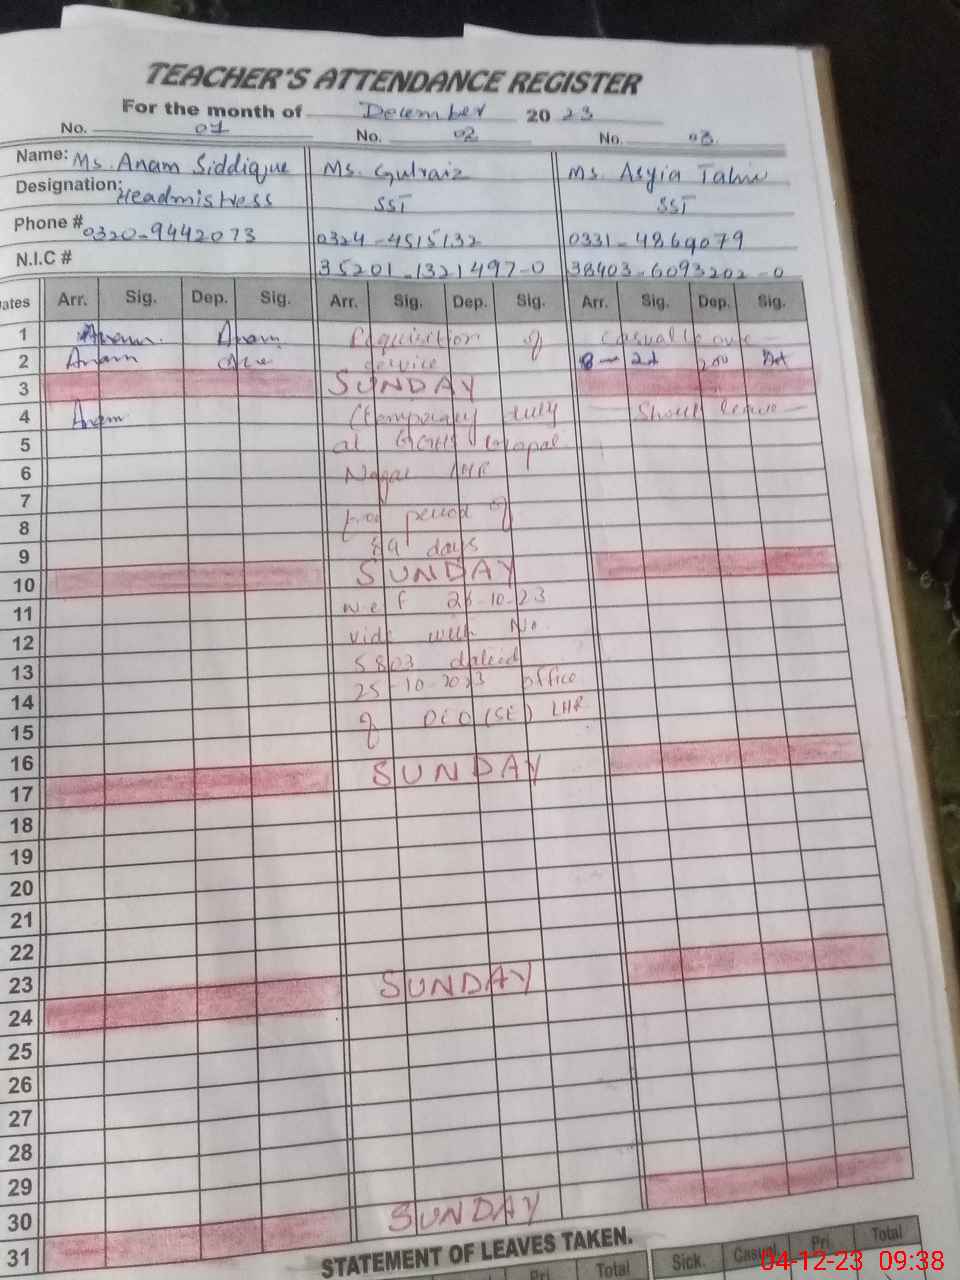 TEACHER'S ATTENDANCE REGISTER
For the month of December 20 23
No. 01 No. 02 No. 03
Name: Ms. Anam Siddique Ms. Gulraiz Ms. Asyia
Designation: Headmistress SST SST
Phone # 0320-9442073 0324-4515132 0331-4869079
N.I.C # 35201-1321497-0 38403-6093202-0
Dates Arr. Sig. Dep. Sig. Arr. Sig. Dep. Sig. Arr. Sig. Dep. Sig.
1 Anam Anam of Casual leave
2 Anam service
3 SUNDAY
4 Anam temporary duty Short leave
5 at
6 Nagar LHR
7
8 for period of
9 89 days
10 SUNDAY
11 w.e.f 26-10-23
12 No.
13 5803 dated
14 25-10-2023 office
15 of DEO (SE) LHR
16
17 SUNDAY
18
19
20
21
22
23
24 SUNDAY
25
26
27
28
29
30
31 SUNDAY
STATEMENT OF LEAVES TAKEN.
Pri. Total Sick. Casual Pri. Total
04-12-23 09:38